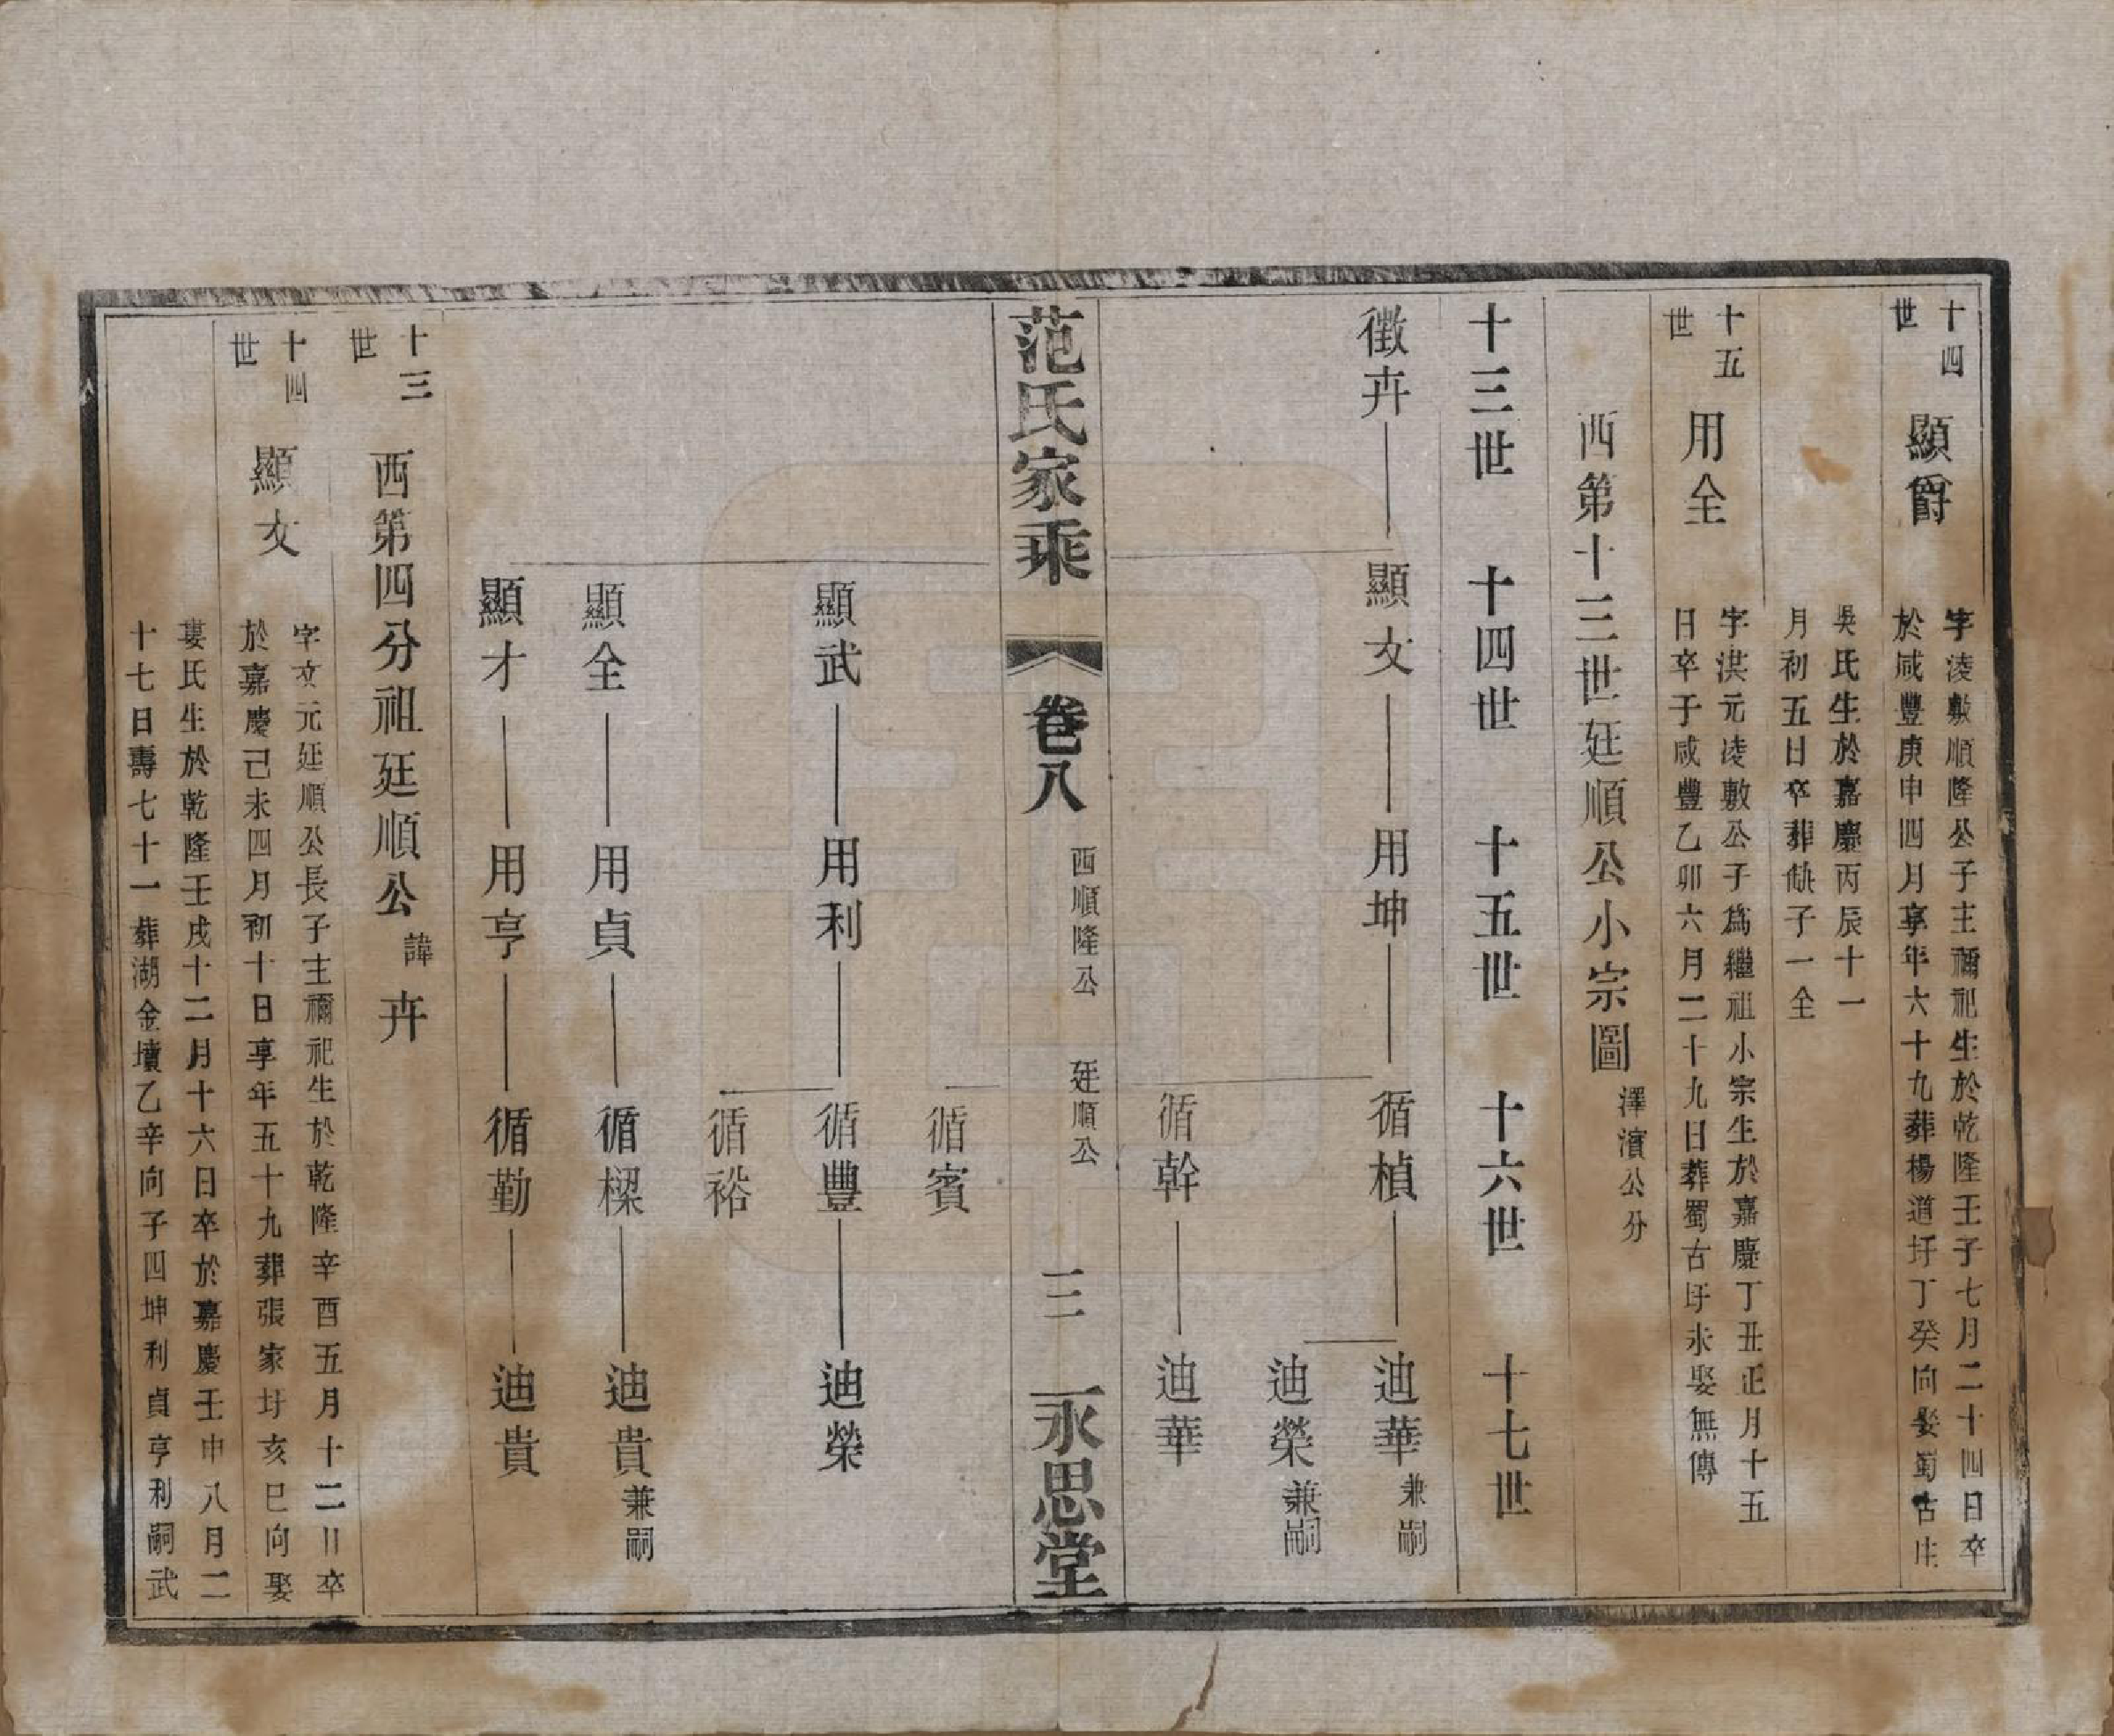 十四世
顯爵
字凌敷順隆公子主禰祀生於乾隆壬子七月二十四日卒
於咸豐庚申四月享年六十九葬楊道圩丁癸向娶蜀古庄
吳氏生於嘉慶丙辰十一
月初五日卒葬缺子一全
十五世
用全
字洪元凌敷公子爲繼祖小宗生於嘉慶丁丑正月十五
日卒于咸豐乙卯六月二十九日葬蜀古圩未娶無傳
西第十三世廷順公小宗圖
澤濱公分
十三世 十四世 十五世 十六世 十七世
徵卉 顯文 用坤 循楨 迪華 兼嗣
迪榮 兼嗣
循幹 迪華
范氏家乘 卷八 西順隆公 廷順公 三 永思堂
循賓
顯武 用利 循豐 迪榮
循裕
顯全 用貞 循樑 迪貴 兼嗣
顯才 用亨 循勤 迪貴
十三世
西第四分祖廷順公 諱 卉
十四世
顯文
字文元廷順公長子主禰祀生於乾隆辛酉五月十二日卒
於嘉慶己未四月初十日享年五十九葬張家圩亥巳向娶
婁氏生於乾隆壬戌十二月十六日卒於嘉慶壬申八月二
十七日壽七十一葬湖金墳乙辛向子四坤利貞亨利嗣武